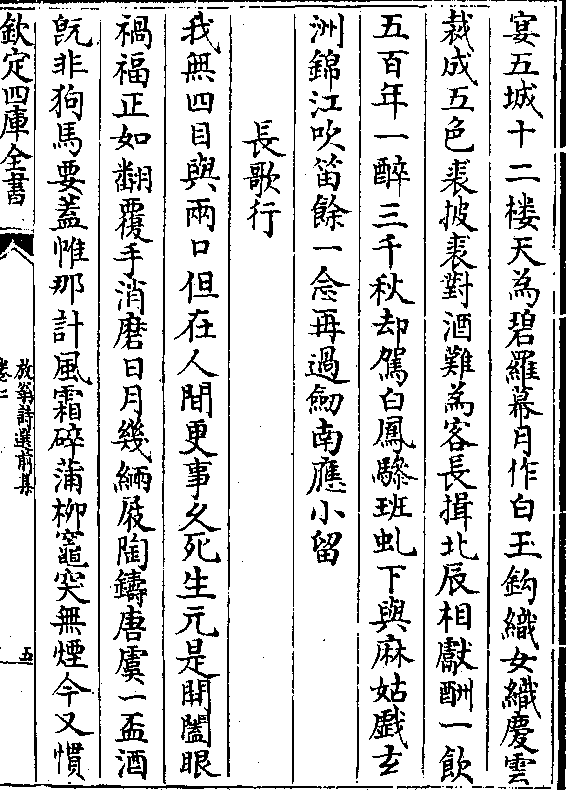 宴五城十二楼天為碧羅幕月作白玉鈎織女織慶雲
裁成五色裘披裘對酒難為客長揖北辰相獻酬一飲
五百年一醉三千秋却駕白鳳驂班虬下與麻姑戲𤣥
洲錦江吹笛餘一念再過劒南應小留
長歌行
我無四目與兩口但在人間更事久死生元是開闔眼
禍福正如翻覆手消磨日月幾緉屐陶鑄唐虞一盃酒
旣非狗馬要葢帷那計風霜碎蒲柳竈突無煙今又慣
欽定四庫全書
放翁詩選前集
卷二
五